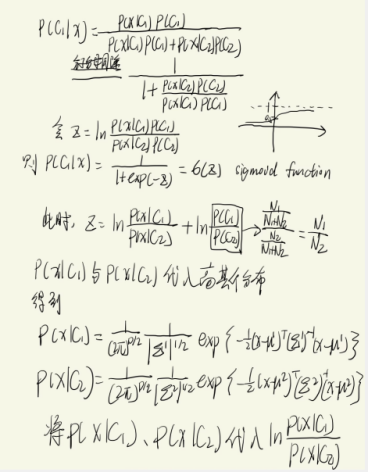 P(C₁|x) = P(x|C₁)P(C₁) / (P(x|C₁)P(C₁)+P(x|C₂)P(C₂))
1 / (1 + P(x|C₂)P(C₂) / (P(x|C₁)P(C₁)))
令 Z = ln P(x|C₁)P(C₁) / (P(x|C₂)P(C₂))
则 P(C₁|x) = 1 / (1+exp(-Z)) = σ(Z) sigmoid function
此时, Z = ln P(x|C₁) / P(x|C₂) + ln P(C₁) / P(C₂) → (N₁ / (N₁+N₂)) / (N₂ / (N₁+N₂)) = N₁ / N₂
P(x|C₁) 与 P(x|C₂) 代入高斯分布
得到
P(x|C₁) = 1/(2π)^{D/2} 1/|Σ¹|^{1/2} exp{-1/2(x-μ¹)ᵀ(Σ¹)⁻¹(x-μ¹)}
P(x|C₂) = 1/(2π)^{D/2} 1/|Σ²|^{1/2} exp{-1/2(x-μ²)ᵀ(Σ²)⁻¹(x-μ²)}
将 P(x|C₁)、P(x|C₂) 代入 ln P(x|C₁) / P(x|C₂)